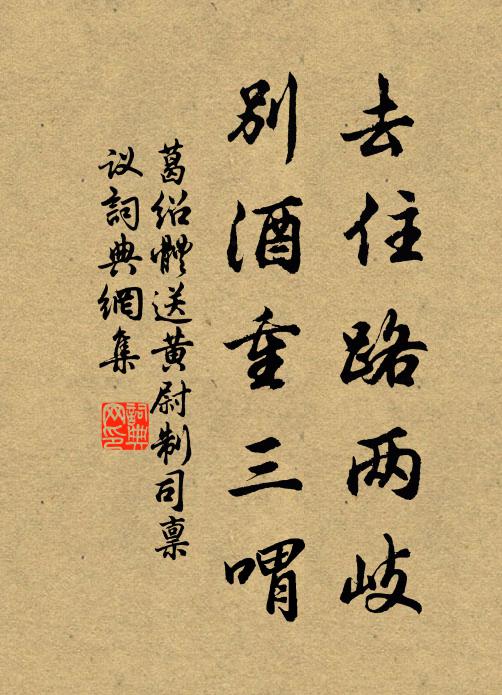 去住路两岐
别酒重三喟
葛绍體送黄尉制司禀
议詞典網集
詞典网印